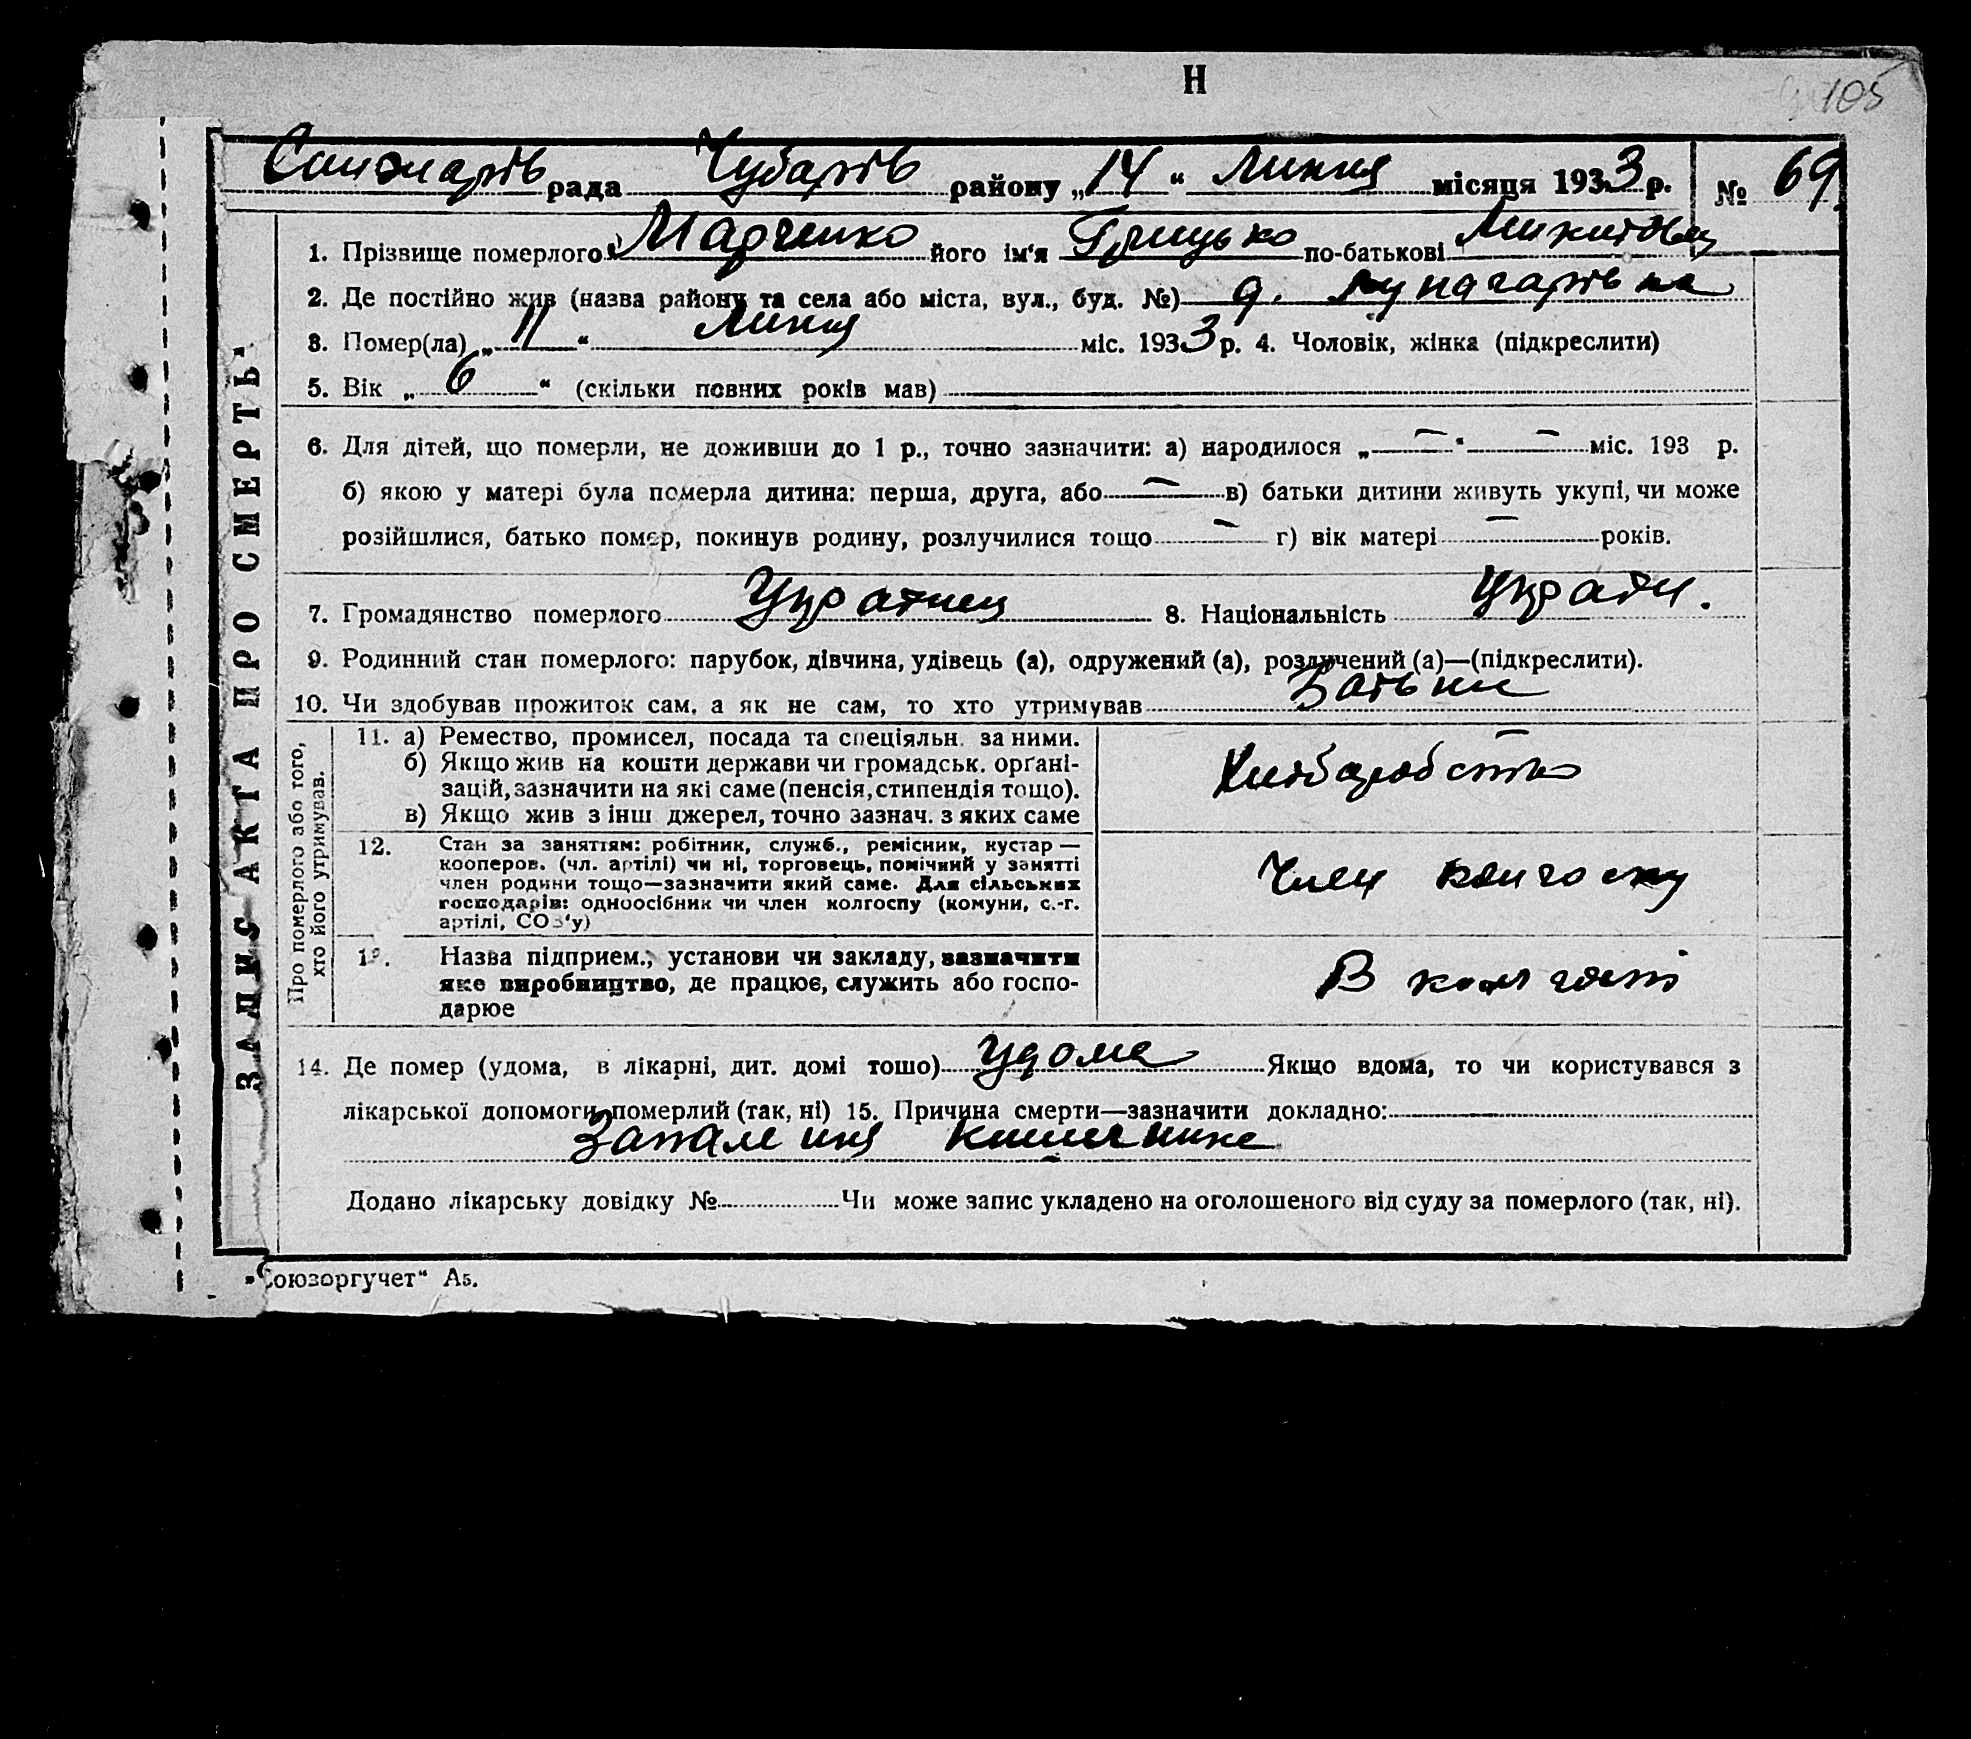 Н
105
рада Чубарів району „14“ Липня місяця 1933 р. № 69
1. Прізвище померлого Марченко його ім'я Грицько по-батькові
2. Де постійно жив (назва району та села або міста, вул., буд. №) д. Луначарівка
3. Помер(ла) „11“ Липня міс. 1933 р. 4. Чоловік, жінка (підкреслити)
5. Вік „6“ (скільки повних років мав)
6. Для дітей, що померли, не доживши до 1 р., точно зазначити: а) народилося „—“ — міс. 193 р.
б) якою у матері була померла дитина: перша, друга, або — в) батьки дитини живуть укупі, чи може
розійшлися, батько помер, покинув родину, розлучилися тощо — г) вік матері — років.
7. Громадянство померлого 8. Національність
9. Родинний стан померлого: парубок, дівчина, удівець (а), одружений (а), розлучений (а)—(підкреслити).
10. Чи здобував прожиток сам, а як не сам, то хто утримував Батьки
ЗАПИС АКТА ПРО СМЕРТЬ
Про померлого або того,
хто його утримував.
11. а) Ремество, промисел, посада та спеціяльн. за ними.
б) Якщо жив на кошти держави чи громадськ. орґані-
зацій, зазначити на які саме (пенсія, стипендія тощо).
в) Якщо жив з інш джерел, точно зазнач. з яких саме
Хліборобство
12. Стан за заняттям: робітник, служб., ремісник, кустар —
кооперов. (чл. артілі) чи ні, торговець, помічний у занятті
член родини тощо—зазначити який саме. Для сільських
господарів: одноосібник чи член колгоспу (комуни, с.-г.
артілі, СОЗ'у)
Член колгоспу
13. Назва підприєм., установи чи закладу, зазначити
яке виробництво, де працює, служить або госпо-
дарює
В колгоспі
14. Де помер (удома, в лікарні, дит. домі тощо) Удома Якщо вдома, то чи користувався з
лікарської допомоги померлий (так, ні) 15. Причина смерти—зазначити докладно:
Запалення
Додано лікарську довідку № Чи може запис укладено на оголошеного від суду за померлого (так, ні).
„Союзоргучет“ А5.